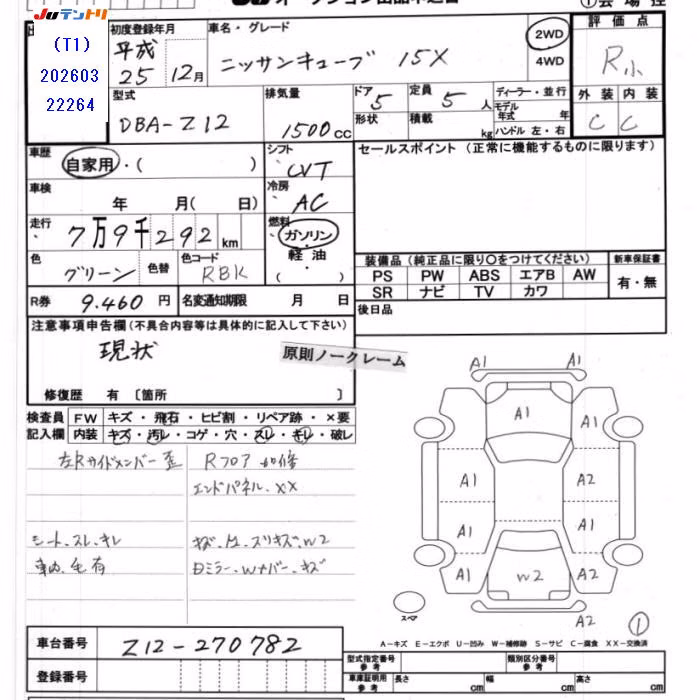 Juテントリ
オークション出品申込書
①会場控
(T1)
202603
22264
初度登録年月
平成
25 12月
車名・グレード
ニッサンキューブ 15X
2WD
4WD
評価点
R小
外装 内装
C C
型式
DBA-Z12
排気量
1500cc
ドア 5
形状
定員 5人
積載 kg
ディーラー・並行
モデル年式 年
ハンドル 左・右
車歴
自家用・( )
シフト
CVT
セールスポイント(正常に機能するものに限ります)
車検
年 月( 日)
冷房
AC
走行
7万9千292km
燃料
ガソリン
軽油
( )
色
グリーン
色替
色コード
RBK
装備品(純正品に限り○をつけてください)
新車保証書
PS PW ABS エアB AW
有・無
SR ナビ TV カワ
R券 9.460円
名変通知期限 月 日
後日品
注意事項申告欄(不具合内容等は具体的に記入して下さい)
現状
原則ノークレーム
修復歴 有〔箇所 〕
検査員 FW キズ・飛石・ヒビ割・リペア跡・×要
記入欄 内装 キズ・汚レ・コゲ・穴・スレ・キレ・破レ
左Rサイドメンバー歪
Rフロア 加修
エンドパネル.XX
シート.スレ.キレ
車内.毛有
キズ.凸.スリキズ.W2
Dミラー.Wナバー.キズ
A1 A1
A1
A1 A2
A1 A1
A1 W2 A2
A2
スペア
①
A-キズ E-エクボ U-凹み W-補修跡 S-サビ C-腐食 XX-交換済
車台番号 Z12-270782
登録番号
型式指定番号 参考
類別区分番号 参考
車庫証明用 参考
長さ cm
幅 cm
高さ cm